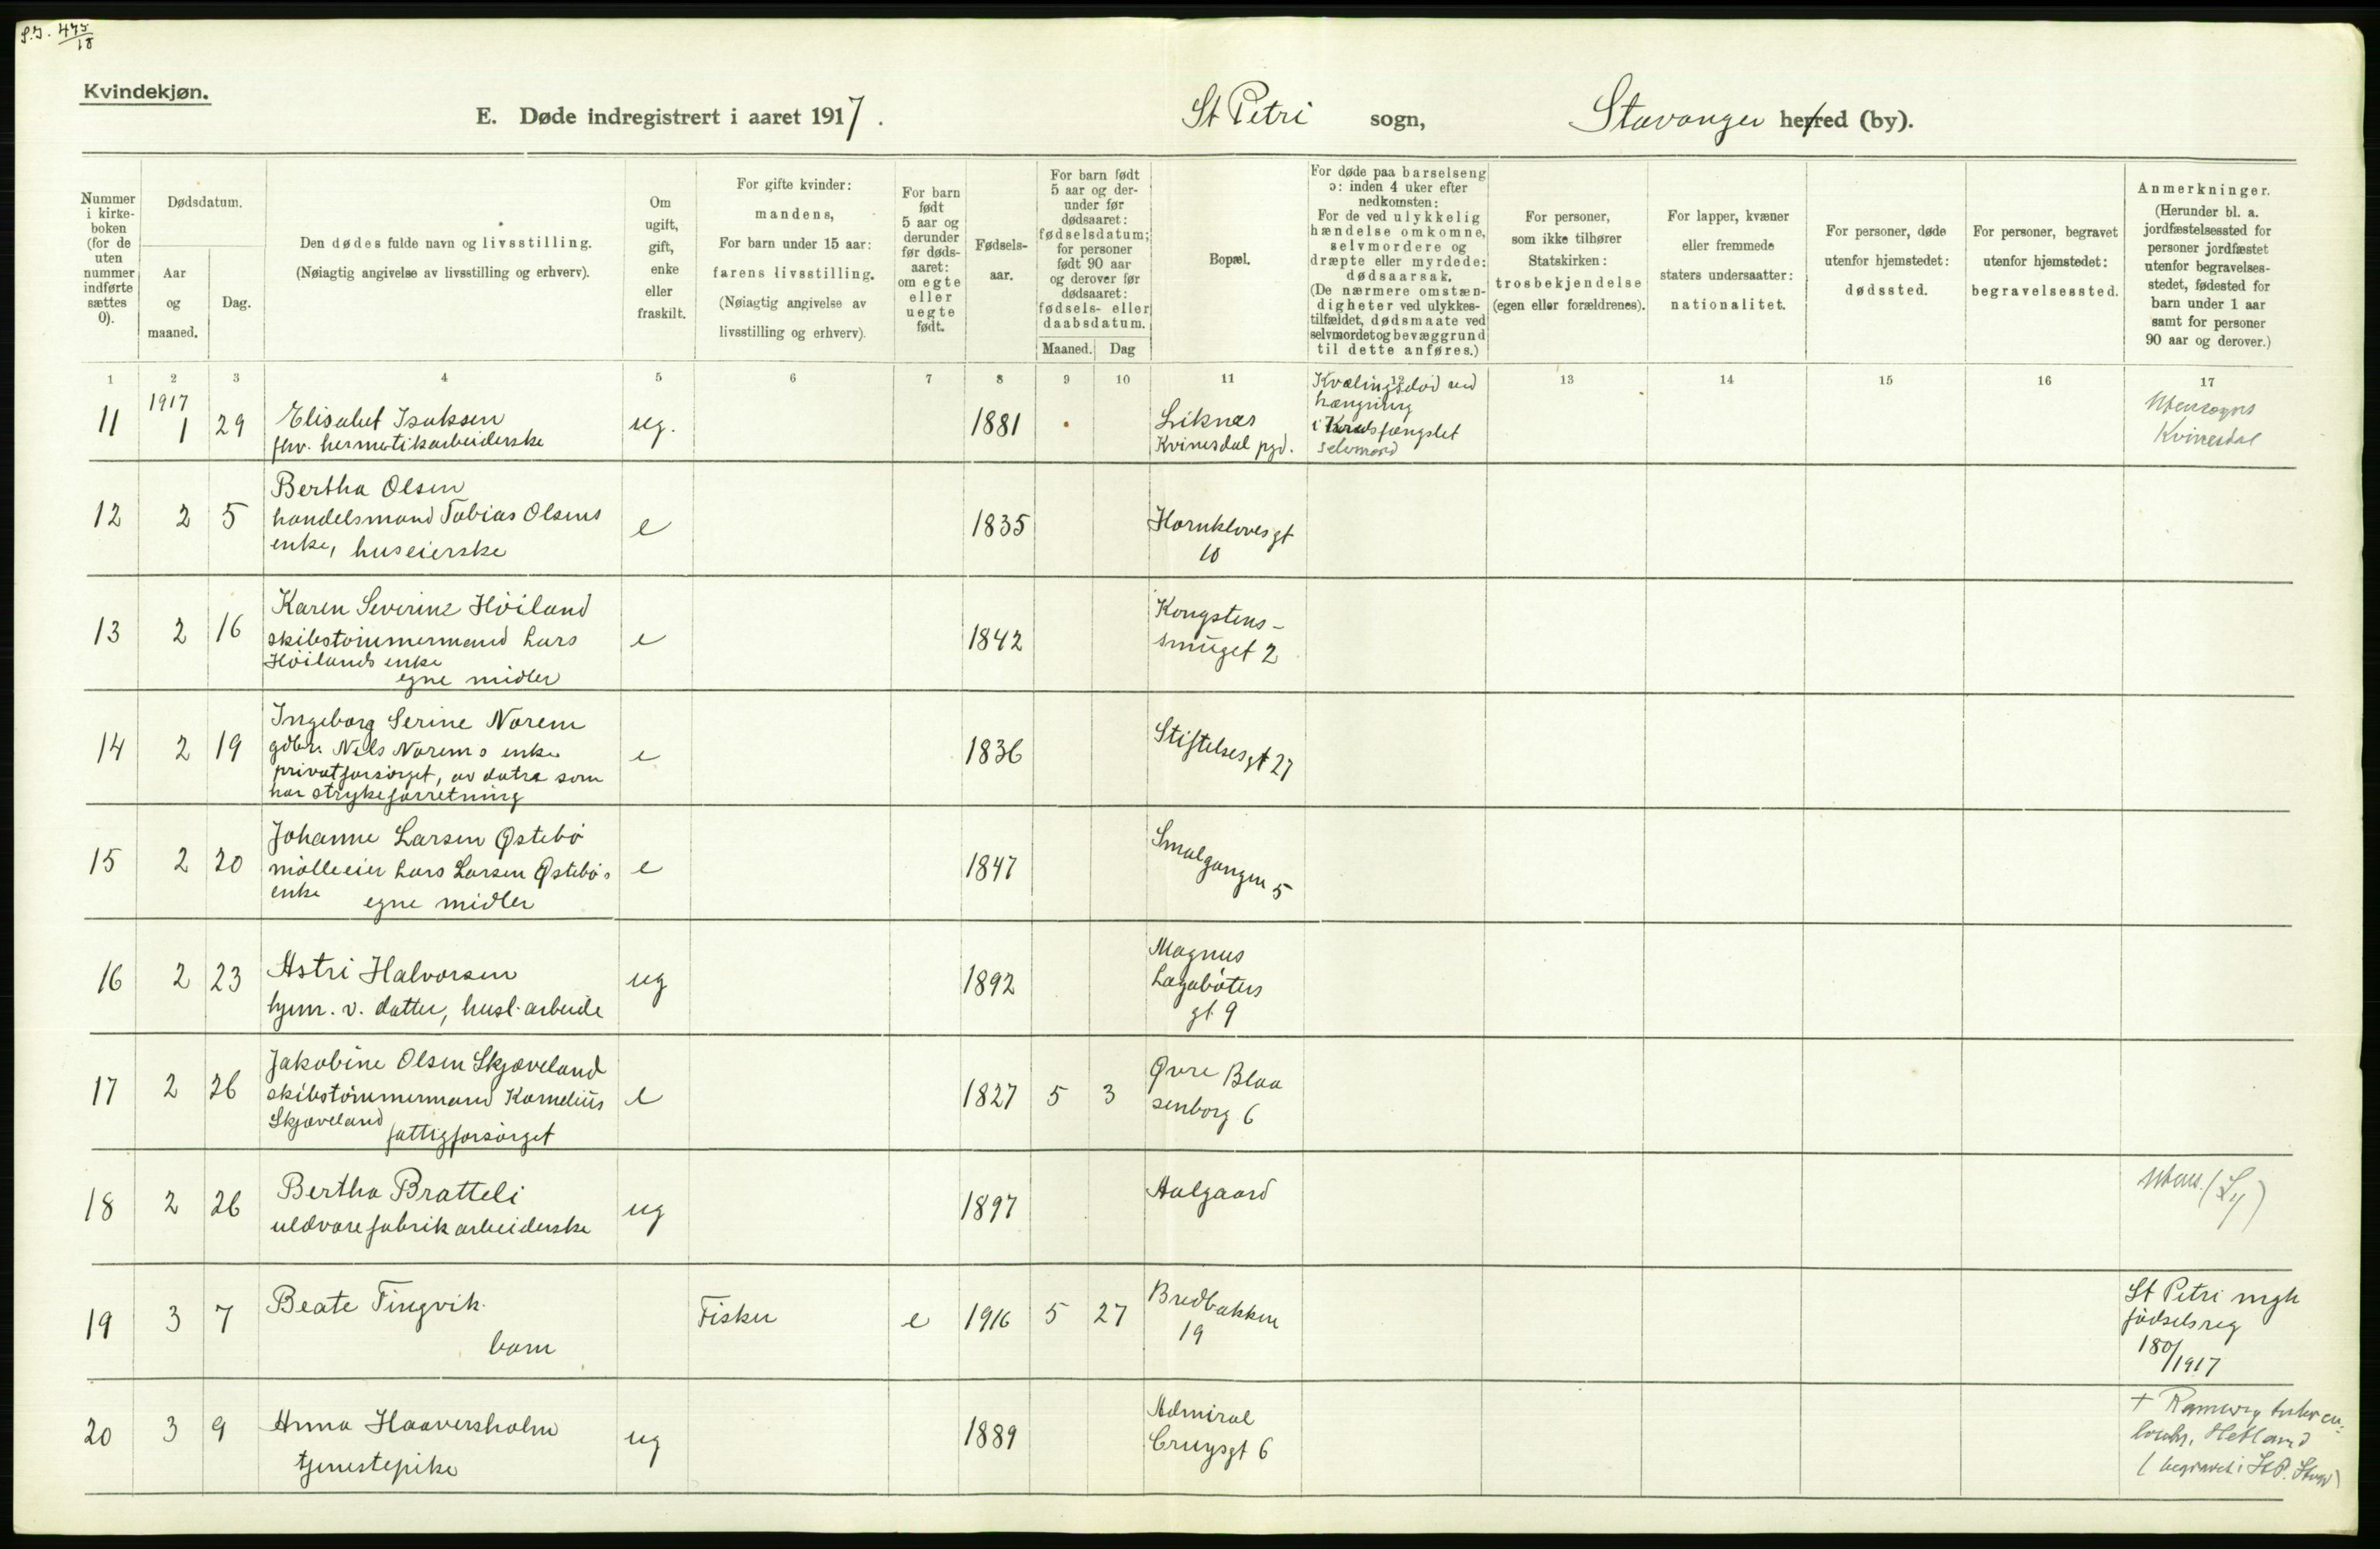 S.J. 475/18
Kvindekjøn.
E. Døde indregistrert i aaret 1917.
St Petri sogn,
Stavanger herred (by).
Nummer i kirkeboken (for de uten nummer indførte sættes 0).
Dødsdatum.
Aar og maaned.
Dag.
Den dødes fulde navn og livsstilling.
(Nøiagtig angivelse av livsstilling og erhverv).
Om ugift, gift, enke eller fraskilt.
For gifte kvinder: mandens,
For barn under 15 aar: farens livsstilling.
(Nøiagtig angivelse av livsstilling og erhverv).
For barn født 5 aar og derunder før dødsaaret: om egte eller uegte født.
Fødselsaar.
For barn født 5 aar og derunder før dødsaaret: fødselsdatum; for personer født 90 aar og derover før dødsaaret: fødsels- eller daabsdatum.
Maaned. Dag
Bopæl.
For døde paa barselseng ɔ: inden 4 uker efter nedkomsten: For de ved ulykkelig hændelse omkomne, selvmordere og dræpte eller myrdede: dødsaarsak. (De nærmere omstændigheter ved ulykkestilfældet, dødsmaate ved selvmordet og bevæggrund til dette anføres.)
For personer, som ikke tilhører Statskirken: trosbekjendelse (egen eller forældrenes).
For lapper, kvæner eller fremmede staters undersaatter: nationalitet.
For personer, døde utenfor hjemstedet: dødssted.
For personer, begravet utenfor hjemstedet: begravelsessted.
Anmerkninger.
(Herunder bl. a. jordfæstelsessted for personer jordfæstet utenfor begravelsesstedet, fødested for barn under 1 aar samt for personer 90 aar og derover.)
1 2 3 4 5 6 7 8 9 10 11 12 13 14 15 16 17
1917
11 1 29 Elisabet Isaksen ug. 1881 Liknes Kvælingsdød ved Utensogns
fhv. hermetikarbeiderske Kvinesdal pgd. hængning Kvinesdal
i Kredsfængslet
selvmord
Bertha Olsen
12 2 5 handelsmand Tobias Olsens e 1835 Hornklovesgt
enke, huseierske 10
Karen Severine Höiland Kongstens-
13 2 16 skibstömmermand Lars e 1842 smuget 2
Höilands enke
egne midler
Ingeborg Serine Norem
14 2 19 gdbr. Nils Norems enke e 1836 Stiftelsesgt 27
privatforsörget, av datre som
har strykeforretning
Johanne Larsen Östebö
15 2 20 mölleeier Lars Larsen Östebös e 1847 Smalgangen 5
enke egne midler
Magnus
16 2 23 Astri Halvorsen ug 1892 Lagabøters
hjem. v. datter, husl. arbeide gt 9
Jakobine Olsen Skjæveland
17 2 26 skibstömmermand Kornelius e 1827 5 3 Øvre Blaa
Skjæveland fattigforsörget senborg 6
18 2 26 Bertha Bratteli ug 1897 Aalgaard Utens. (Ly)
uldvarefabrikarbeiderske
19 3 7 Beate Tingvik. Fisker e 1916 5 27 Bredbakken St Petri mgh
barn 19 födselsreg
180/1917
20 3 9 Anna Haaversholm ug 1889 Admiral
tjenestepike Cruysgt 6
Hetland